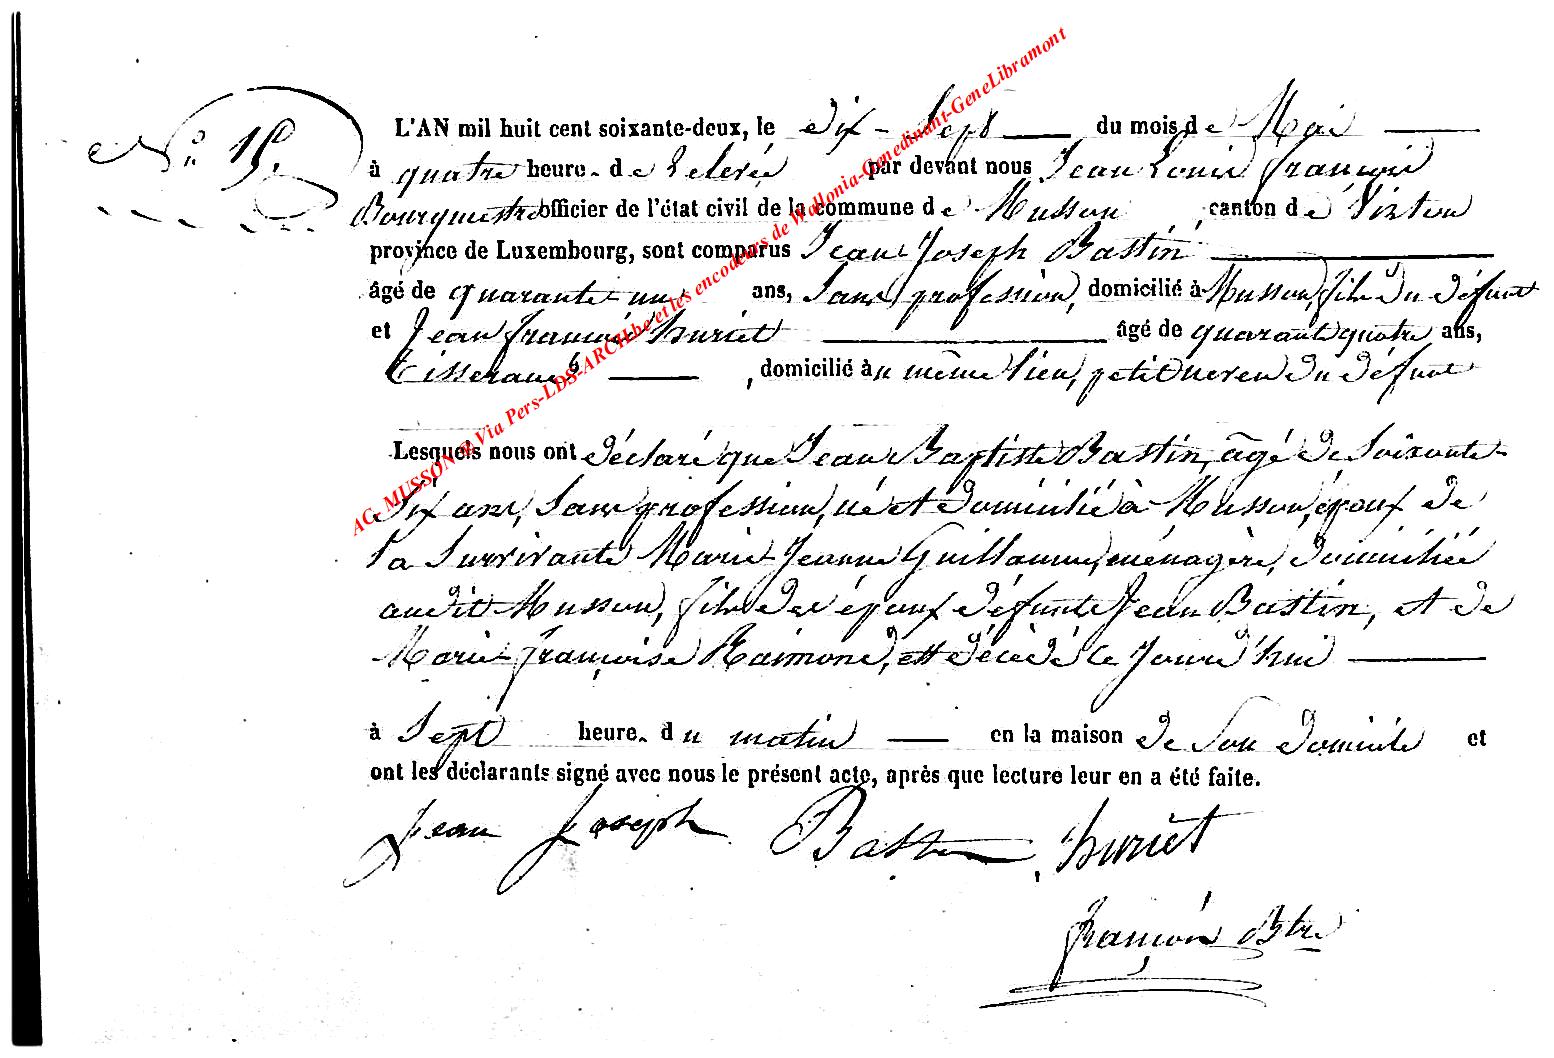 N.° 15.
L'AN mil huit cent soixante-deux, le dix-sept du mois de Mai
à quatre heure. de relevée par devant nous Jean Louis François
Bourguestre officier de l'état civil de la commune de Musson, canton de Virton
province de Luxembourg, sont comparus Jean Joseph Bastin
âgé de quarante-un ans, sans profession, domicilié à Musson, fils du défunt
et Jean François huriet âgé de quarante quatre ans,
tisserand, domicilié au même lieu, petit neveu du défunt
Lesquels nous ont déclaré que Jean Baptiste Bastin, âgé de soixante-
dix ans, sans profession, né et domicilié à Musson, époux de
la survivante Marie-Jeanne Guillaume, ménagère, domiciliée
audit Musson, fils des époux défunts Jean Bastin, et de
Marie-Françoise Raimond, est décédé ce jourd'hui
à sept heure. du matin en la maison de son domicile et
ont les déclarants signé avec nous le présent acte, après que lecture leur en a été faite.
Jean Joseph Bastin huriet
François Btre
AC. MUSSON @ Via Pers-LDS-ARCH.be et les encodeurs de Wallonia-Genedinant-GeneLibramont